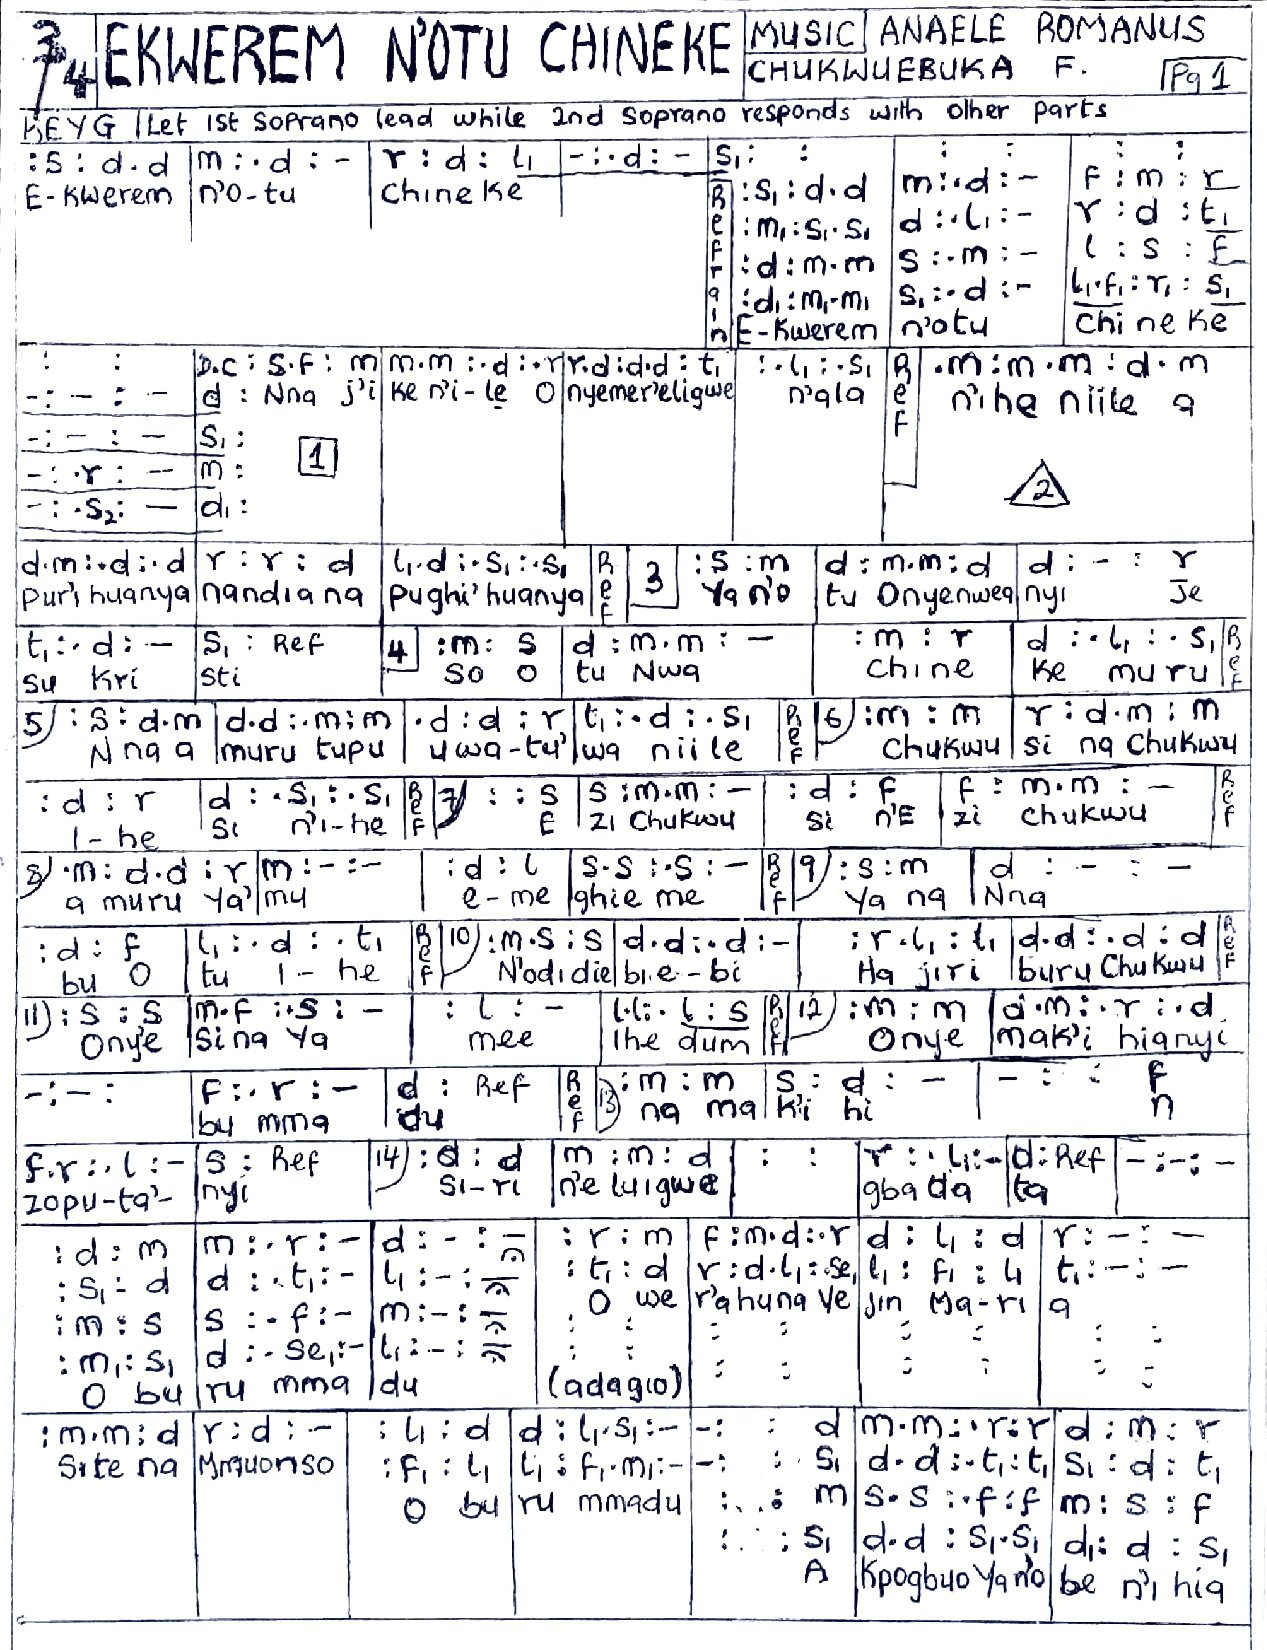 3/4 EKWEREM N'OTU CHINEKE MUSIC ANAELE ROMANUS
CHUKWUEBUKA F. Pg 1
KEY G Let 1st Soprano lead while 2nd Soprano responds with other parts
:s : d.d | m : .d : - | r : d : l₁ | - : .d : - | s₁ : : | : : | : :
E-kwerem n'o-tu Chineke
Refrain
:s₁ : d.d | m : .d : - | f : m : r
:m₁ : s₁.s₁ | d : .l₁ : - | r : d : t₁
:d : m.m | s : .m : - | l : s : f
:d₁ : m₁.m₁ | s₁ : .d : - | l₁.f₁ : r₁ : s₁
E-kwerem n'otu Chi ne ke
: : | D.C : s.f : m | m.m : .d : .r | r.d : d.d : t₁ | : .l₁ : .s₁ | Ref | .m : m.m : d.m
- : - : - | d : Nna j'i ke n'i-le O nyemer'eligwe n'ala n'ihe niile a
- : - : - | s₁ : 1
- : .r : - | m : 2
- : .s₂ : - | d₁ :
d.m : .d : .d | r : r : d | l₁.d : .s₁ : .s₁ | Ref | 3 :s : m | d : m.m : d | d : - : r
pur'i huanya nandia na pughi'huanya Ya n'o tu Onyenwea nyi Je
t₁ : .d : - | s₁ : Ref | 4 :m : s | d : m.m : - | :m : r | d : .l₁ : .s₁ | Ref
su kri sti so O tu Nwa Chine ke muru
5) :s : d.m | d.d : .m : m | .d : d : r | t₁ : .d : .s₁ | Ref | 6) :m : m | r : d.m : m
Nna a muru tupu uwa-tu' wa niile Chukwu si na Chukwu
:d : r | d : .s₁ : .s₁ | Ref | 7) : : s | s : m.m : - | :d : f | f : m.m : - | Ref
I-he si n'i-he E zi Chukwu si n'E zi chukwu
8) .m : d.d : r | m : - : - | :d : l | s.s : .s : - | Ref | 9) :s : m | d : - : -
a muru Ya' mu e-me ghie me Ya na Nna
:d : f | l₁ : .d : .t₁ | Ref | 10) :m.s : s | d.d : .d : - | :r.l₁ : l₁ | d.d : .d : d | Ref
bu O tu I-he N'odidie bi e-bi Ha jiri buru Chukwu
11) :s : s | m.f : .s : - | :l : - | l.l : .l : s | Ref | 12) :m : m | d.m : .r : .d
Onye si na Ya mee Ihe dum Onye mak'i hianyi
- : - : | f : .r : - | d : Ref | Ref | 13) :m : m | s : d : - | - : : f
bu mma du na ma k'i hi n
f.r : .l : - | s : Ref | 14) :d : d | m : m : d | : : | r : .l₁ : - | d : Ref | - : - : -
zopu-ta'- nyi si-ri n'e luigwe gba da ta
:d : m | m : .r : - | d : - : - | :r : m | f : m.d : .r | d : l₁ : d | r : - : -
:s₁ : d | d : .t₁ : - | l₁ : - : - | :t₁ : d | r : d.l₁ : .se₁ | l₁ : f₁ : l₁ | t₁ : - : -
O we r'ahuna Ve jin Ma-ri a
:m : s | s : .f : - | m : - : - | : : | : : | : : | : :
:m₁ : s₁ | d : .se₁ : - | l₁ : - : - | : : | : : | : : | : :
O bu ru mma du (adagio)
:m.m : d | r : d : - | :l₁ : d | d : l₁.s₁ : - | - : : d | m.m : .r : r | d : m : r
Site na Mmuonso
:f₁ : l₁ | l₁ : f₁.m₁ : - | - : : s₁ | d.d : .t₁ : t₁ | s₁ : d : t₁
O bu ru mmadu
: : m | s.s : .f : f | m : s : f
: : s₁ | d.d : s₁.s₁ | d₁ : d : s₁
A Kpogbuo Ya n'o be n'i hia